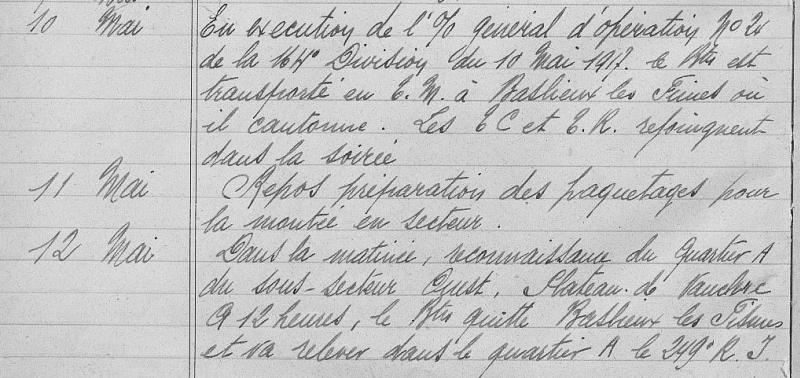 10 Mai En execution de l'O/ général d'opération No 24
de la 164e Division du 10 Mai 1917. le Btn est
transporté en C. M. à Baslieux les Fismes où
il cantonne. Les T C et T. R. rejoignent
dans la soirée
11 Mai Repos préparation des paquetages pour
la montée en secteur.
12 Mai Dans la matinée, reconnaissance du Quartier A
du sous-secteur Ouest, Plateau de Vauclerc
A 12 heures, le Btn quitte Baslieux les Fismes
et va relever dans le quartier A le 249e R. I.